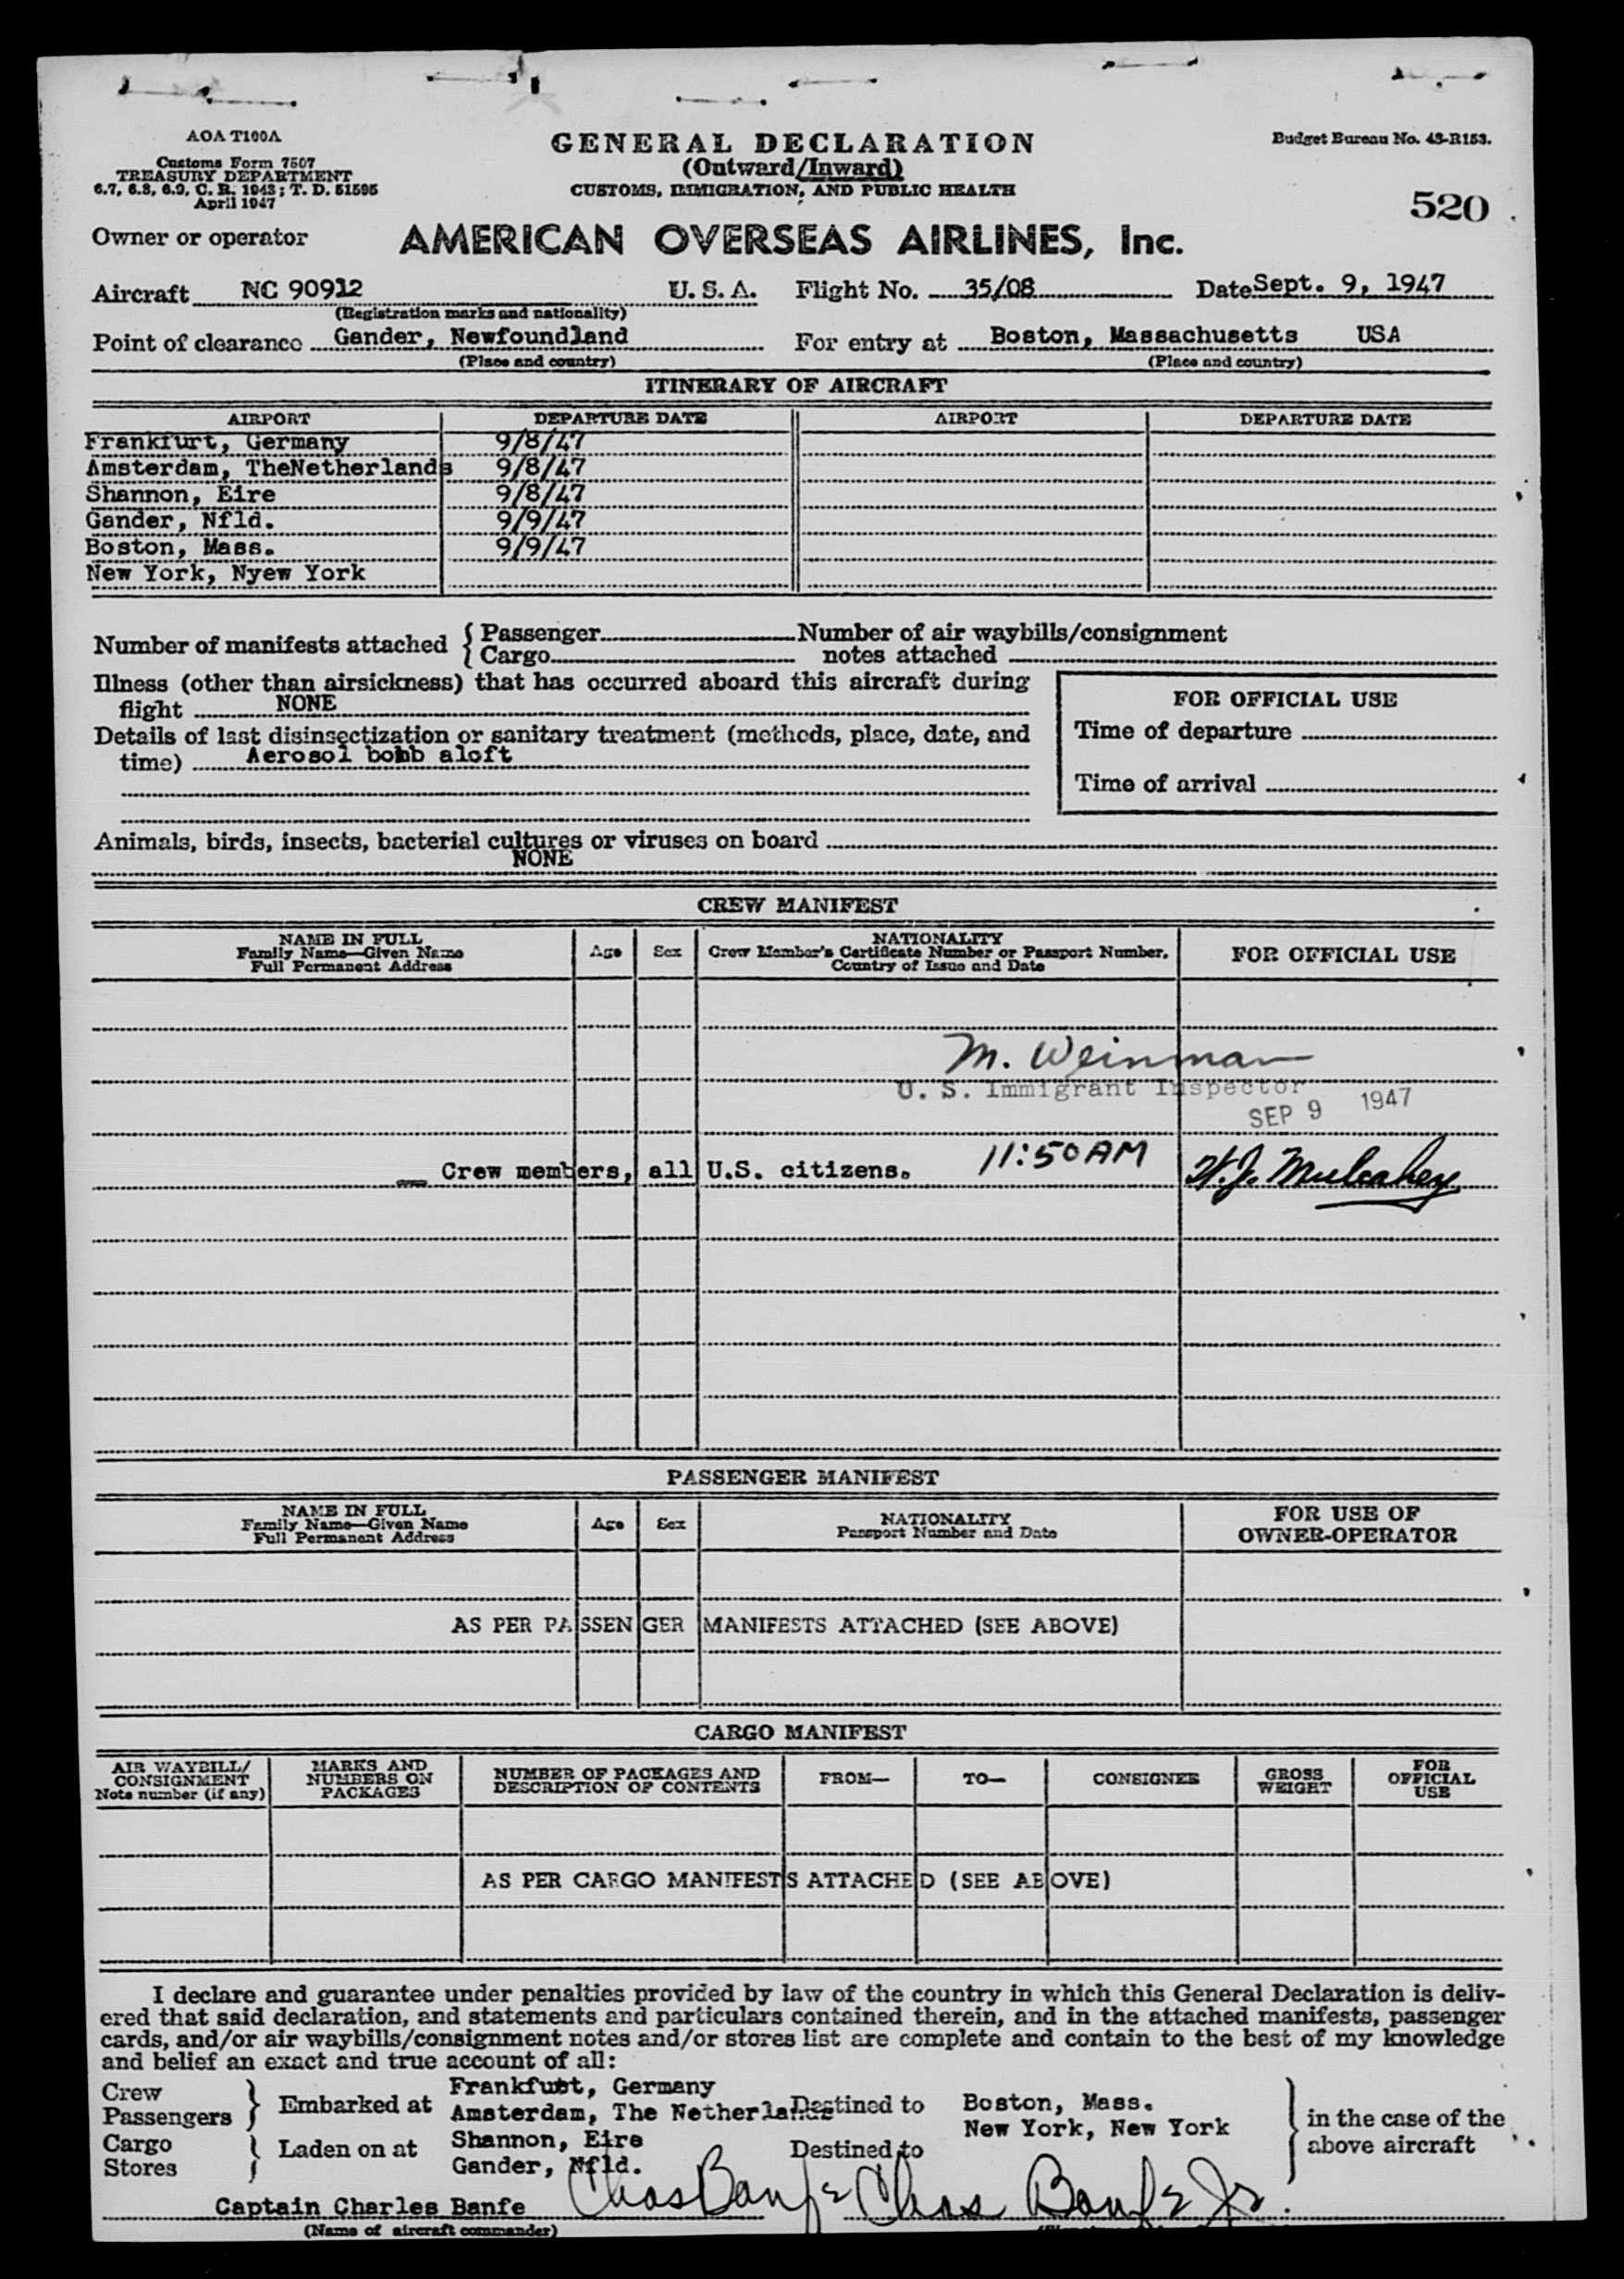 AOA T100A
Customs Form 7507
TREASURY DEPARTMENT
6.7, 6.8, 6.9, C. R. 1943; T. D. 51595
April 1947
GENERAL DECLARATION
(Outward/Inward)
CUSTOMS, IMMIGRATION, AND PUBLIC HEALTH
Budget Bureau No. 43-R153.
520
Owner or operator AMERICAN OVERSEAS AIRLINES, Inc.
Aircraft NC 90912 U. S. A. Flight No. 35/08 Date Sept. 9, 1947
(Registration marks and nationality)
Point of clearance Gander, Newfoundland For entry at Boston, Massachusetts USA
(Place and country) (Place and country)
ITINERARY OF AIRCRAFT
AIRPORT DEPARTURE DATE AIRPORT DEPARTURE DATE
Frankfurt, Germany 9/8/47
Amsterdam, TheNetherlands 9/8/47
Shannon, Eire 9/8/47
Gander, Nfld. 9/9/47
Boston, Mass. 9/9/47
New York, Nyew York
Number of manifests attached { Passenger Number of air waybills/consignment
Cargo notes attached
Illness (other than airsickness) that has occurred aboard this aircraft during
flight NONE
Details of last disinsectization or sanitary treatment (methods, place, date, and
time) Aerosol bomb aloft
FOR OFFICIAL USE
Time of departure
Time of arrival
Animals, birds, insects, bacterial cultures or viruses on board
NONE
CREW MANIFEST
NAME IN FULL
Family Name—Given Name
Full Permanent Address
Age Sex
NATIONALITY
Crew Member's Certificate Number or Passport Number,
Country of Issue and Date
FOR OFFICIAL USE
M. Weinman
U. S. Immigrant Inspector
SEP 9 1947
Crew members, all U.S. citizens. 11:50 AM W.J. Mulcahey
PASSENGER MANIFEST
NAME IN FULL
Family Name—Given Name
Full Permanent Address
Age Sex
NATIONALITY
Passport Number and Date
FOR USE OF
OWNER-OPERATOR
AS PER PASSENGER MANIFESTS ATTACHED (SEE ABOVE)
CARGO MANIFEST
AIR WAYBILL/
CONSIGNMENT
Note number (if any)
MARKS AND
NUMBERS ON
PACKAGES
NUMBER OF PACKAGES AND
DESCRIPTION OF CONTENTS
FROM— TO— CONSIGNEE
GROSS
WEIGHT
FOR
OFFICIAL
USE
AS PER CARGO MANIFESTS ATTACHED (SEE ABOVE)
I declare and guarantee under penalties provided by law of the country in which this General Declaration is deliv-
ered that said declaration, and statements and particulars contained therein, and in the attached manifests, passenger
cards, and/or air waybills/consignment notes and/or stores list are complete and contain to the best of my knowledge
and belief an exact and true account of all:
Crew
Passengers } Embarked at Frankfurt, Germany
Amsterdam, The Netherlands Destined to Boston, Mass.
New York, New York
Cargo
Stores } Laden on at Shannon, Eire
Gander, Nfld. Destined to
} in the case of the
above aircraft
Captain Charles Banfe Chas Banfe Chas Banfe Jr.
(Name of aircraft commander)